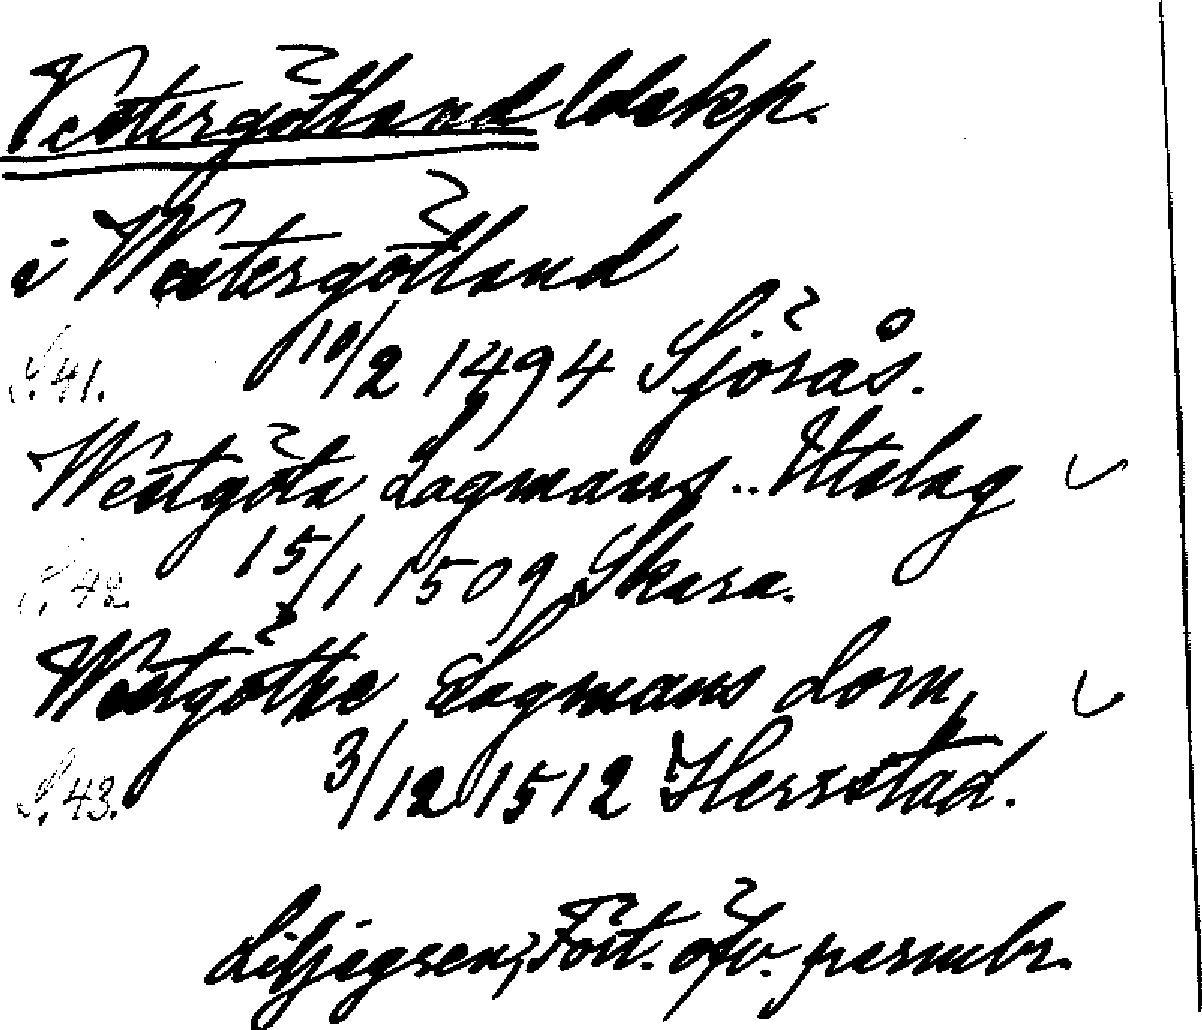 Vestergötland ldskp.
i Westergötland
S. 41. 10/2 1494 Sjörås.
Westgöta Lagmans.. Utslag
S. 42. 15/1 1509 Skara.
Westgöthe Lagmans dom,
S. 43. 3/12 1512 Herrstad.
Liljegren, Fört. öfv. permbr.